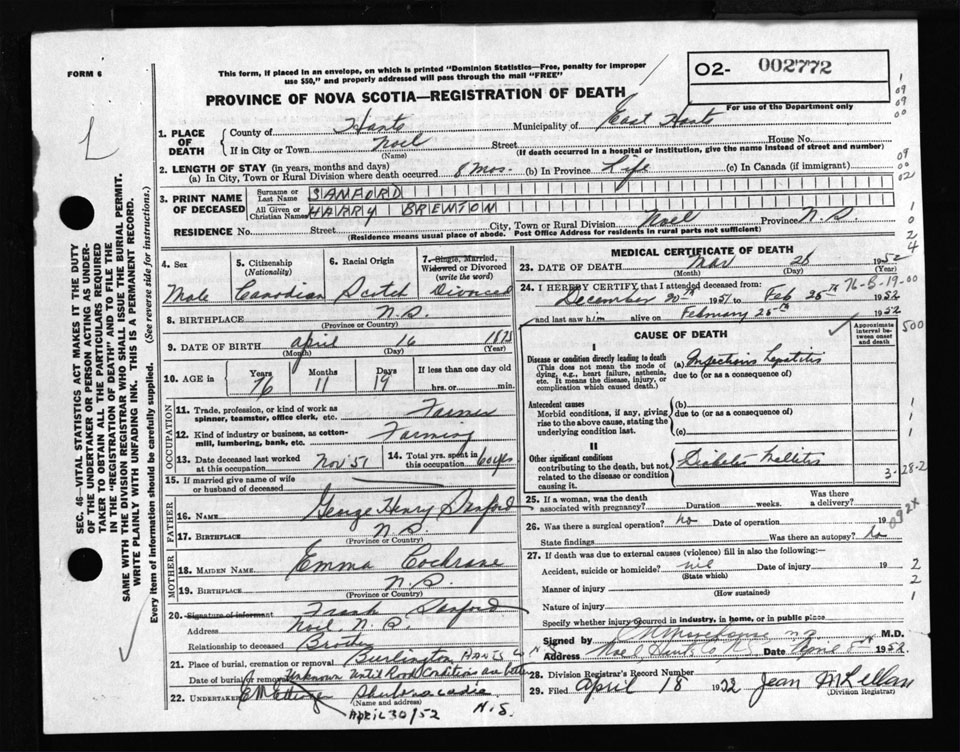 FORM 6
This form, if placed in an envelope, on which is printed "Dominion Statistics—Free, penalty for improper
use $50," and properly addressed will pass through the mail "FREE"
O2- 002772
For use of the Department only
PROVINCE OF NOVA SCOTIA—REGISTRATION OF DEATH
1. PLACE OF DEATH
County of Hants Municipality of East Hants
If in City or Town Noel Street House No.
(Name) (If death occurred in a hospital or institution, give the name instead of street and number)
2. LENGTH OF STAY (in years, months and days)
(a) In City, Town or Rural Division where death occurred 8 mos. (b) In Province Life (c) In Canada (if immigrant)
3. PRINT NAME OF DECEASED
Surname or Last Name SANFORD
All Given or Christian Names HARRY BRENTON
RESIDENCE No. Street City, Town or Rural Division Noel Province N.S.
(Residence means usual place of abode. Post Office Address for residents in rural parts not sufficient)
4. Sex
Male
5. Citizenship
(Nationality)
Canadian
6. Racial Origin
Scotch
7. Single, Married,
Widowed or Divorced
(write the word)
Divorced
8. BIRTHPLACE N.S.
(Province or Country)
9. DATE OF BIRTH April 16 1875
(Month) (Day) (Year)
10. AGE in Years Months Days If less than one day old
76 11 19 hrs. or min.
OCCUPATION
11. Trade, profession, or kind of work as
spinner, teamster, office clerk, etc. Farmer
12. Kind of industry or business, as cotton-
mill, lumbering, bank, etc. Farming
13. Date deceased last worked
at this occupation Nov 51
14. Total yrs. spent in
this occupation 60 yrs
15. If married give name of wife
or husband of deceased
FATHER
16. NAME George Henry Sanford
17. BIRTHPLACE N.S.
(Province or Country)
MOTHER
18. MAIDEN NAME Emma Cochrane
19. BIRTHPLACE N.S.
(Province or Country)
20. Signature of informant Frank Sanford
Address Noel N.S.
Relationship to deceased Brother
21. Place of burial, cremation or removal Burlington HANTS Co N.S.
Date of burial or removal Unknown Until Road Conditions are better
22. UNDERTAKER Shubenacadie
(Name and address)
APRIL 30/52 N.S.
MEDICAL CERTIFICATE OF DEATH
23. DATE OF DEATH Mar 26 1952
(Month) (Day) (Year)
24. I HEREBY CERTIFY that I attended deceased from:
December 20th 1951 to Feb 25th 1952
and last saw him alive on February 25th 1952
76-5-19-00
CAUSE OF DEATH
Approximate interval between onset and death
I
Disease or condition directly leading to death
(This does not mean the mode of
dying, e.g., heart failure, asthenia,
etc. It means the disease, injury, or
complication which caused death.)
(a) Infectious Hepatitis
due to (or as a consequence of)
Antecedent causes
Morbid conditions, if any, giving
rise to the above cause, stating the
underlying condition last.
(b)
due to (or as a consequence of)
(c)
II
Other significant conditions
contributing to the death, but not
related to the disease or condition
causing it.
Diabetes Mellitus
3-28-2
25. If a woman, was the death
associated with pregnancy? Duration weeks. Was there
a delivery?
26. Was there a surgical operation? no Date of operation 19
State findings Was there an autopsy? no
27. If death was due to external causes (violence) fill in also the following:—
Accident, suicide or homicide? nil Date of injury 19
(State which)
Manner of injury
(How sustained)
Nature of injury
Specify whether injury occurred in industry, in home, or in public place
Signed by M.D.
Address Noel, Hants Co, N.S. Date April 1952
28. Division Registrar's Record Number
29. Filed April 18 1952 Jean McLellan
(Division Registrar)
SEC. 46—VITAL STATISTICS ACT MAKES IT THE DUTY
OF THE UNDERTAKER OR PERSON ACTING AS UNDER-
TAKER TO OBTAIN ALL THE PARTICULARS REQUIRED
IN THE "REGISTRATION OF DEATH" AND TO FILE THE
SAME WITH THE DIVISION REGISTRAR WHO SHALL ISSUE THE BURIAL PERMIT.
WRITE PLAINLY WITH UNFADING INK. THIS IS A PERMANENT RECORD.
Every item of information should be carefully supplied. (See reverse side for instructions.)